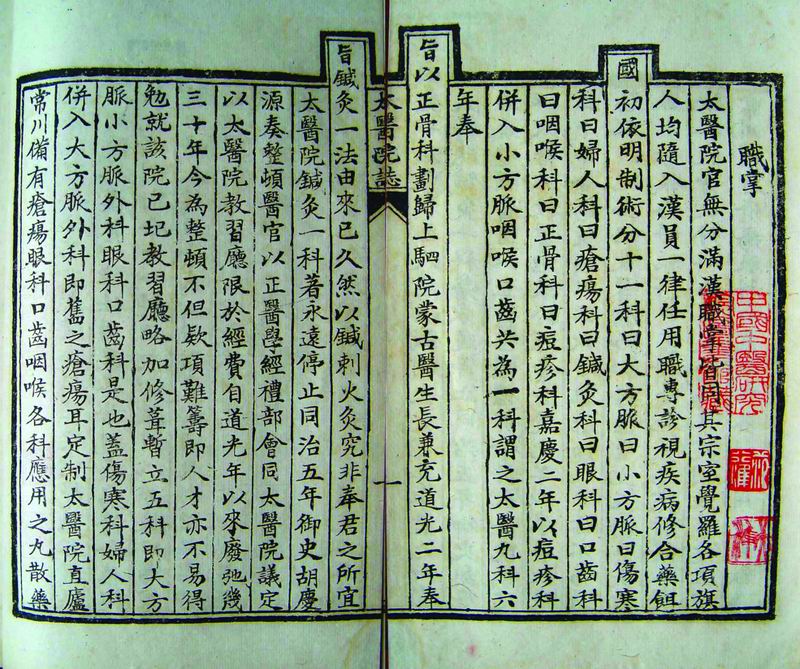 職掌
太醫院官無分滿漢職掌皆同其宗室覺羅各項旗
人均隨入漢員一律任用職專診視疾病修合藥餌
國初依明制術分十一科曰大方脈曰小方脈曰傷寒
科曰婦人科曰瘡瘍科曰鍼灸科曰眼科曰口齒科
曰咽喉科曰正骨科曰痘疹科嘉慶二年以痘疹科
併入小方脈咽喉口齒共為一科謂之太醫九科六
年奉
旨以正骨科劃歸上駟院蒙古醫生長兼充道光二年奉
太醫院誌 一
旨鍼灸一法由來已久然以鍼刺火灸究非奉君之所宜
太醫院鍼灸一科著永遠停止同治五年御史胡慶
源奏整頓醫官以正醫學經禮部會同太醫院議定
以太醫院教習廳限於經費自道光年以來廢弛幾
三十年今為整頓不但欵項難籌即人才亦不易得
勉就該院已圮教習廳略加修葺暫立五科即大方
脈小方脈外科眼科口齒科是也蓋傷寒科婦人科
併入大方脈外科即舊之瘡瘍耳定制太醫院直廬
常川備有瘡瘍眼科口齒咽喉各科應用之丸散藥
中國中醫研究